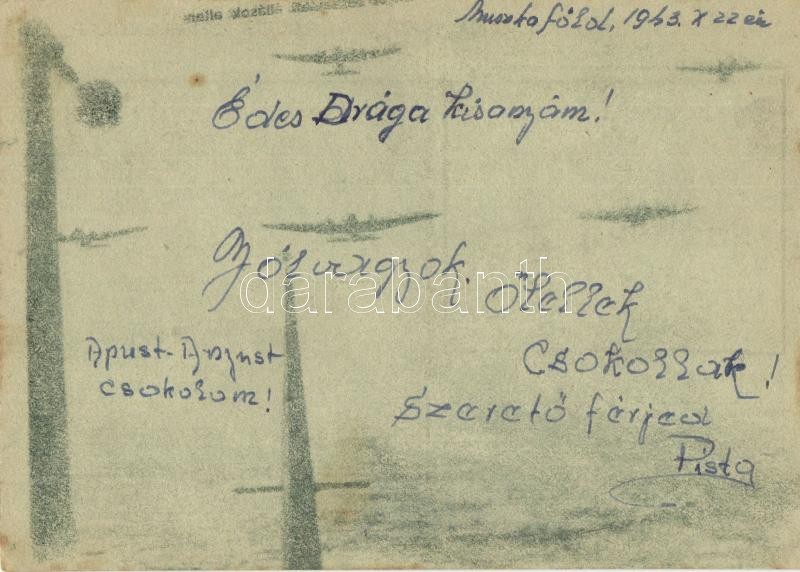 Muszkaföld, 1943. X 22 én
Édes Drága Kisanyám!
Jól vagyok.
Ölellek
Csokollak!
Apust-Anyust
csokolom!
Szerető férjed
Pista
darabanth.com